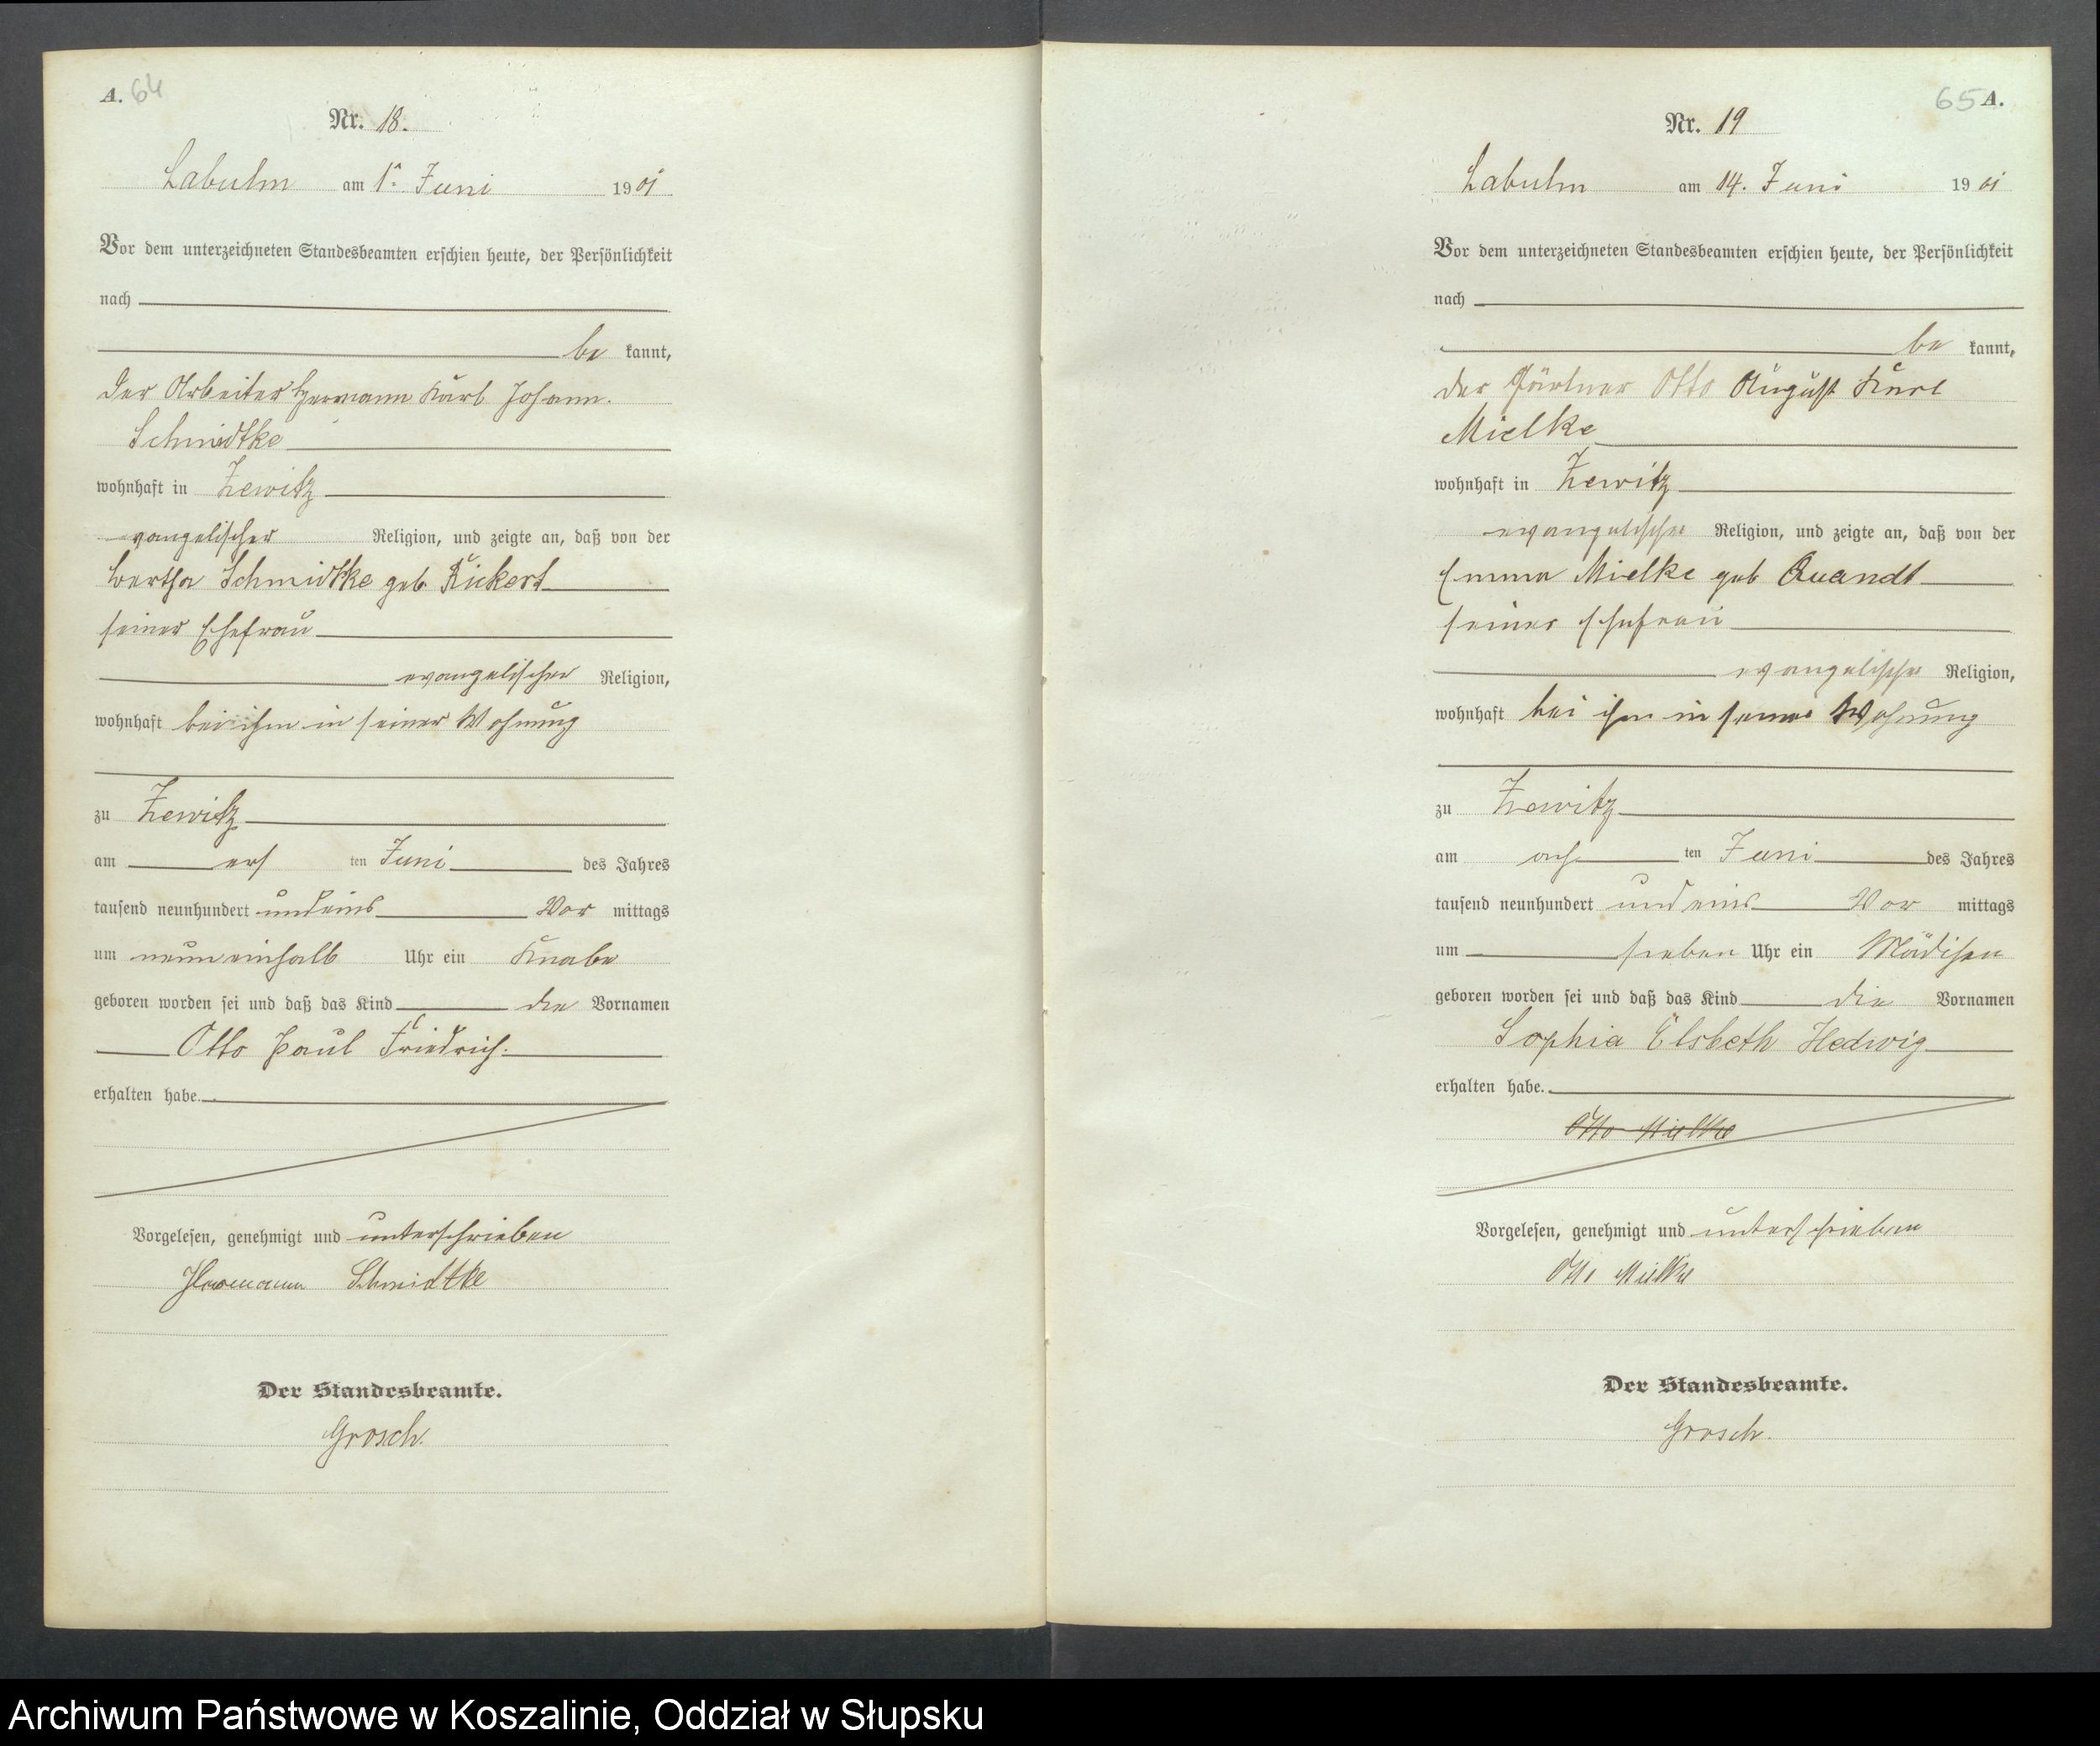 A. 64
Nr. 18.
Labuhn am 1. Juni 1901
Vor dem unterzeichneten Standesbeamten erschien heute, der Persönlichkeit
nach
be kannt,
der Arbeiter Hermann Karl Johann
Schmidtke
wohnhaft in Zewitz
evangelischer Religion, und zeigte an, daß von der
Bertha Schmidtke geb Rickert
seiner Ehefrau
evangelischer Religion,
wohnhaft bei ihm in seiner Wohnung
zu Zewitz
am ers ten Juni des Jahres
tausend neunhundert und eins Vor mittags
um neun einhalb Uhr ein Knabe
geboren worden sei und daß das Kind die Vornamen
Otto Paul Friedrich.
erhalten habe.
Vorgelesen, genehmigt und unterschrieben
Hermann Schmidtke
Der Standesbeamte.
Grosch.
65 A.
Nr. 19
Labuhn am 14. Juni 1901
Vor dem unterzeichneten Standesbeamten erschien heute, der Persönlichkeit
nach
be kannt,
der Gärtner Otto August Karl
Mielke
wohnhaft in Zewitz
evangelischer Religion, und zeigte an, daß von der
Emma Mielke geb Quandt
seiner Ehefrau
evangelischer Religion,
wohnhaft bei ihm in seiner Wohnung
zu Zewitz
am ach ten Juni des Jahres
tausend neunhundert und eins Vor mittags
um sieben Uhr ein Mädchen
geboren worden sei und daß das Kind die Vornamen
Sophia Elsbeth Hedwig
erhalten habe.
Otto Mielke
Vorgelesen, genehmigt und unterschrieben
Otto Mielke
Der Standesbeamte.
Grosch.
Archiwum Państwowe w Koszalinie, Oddział w Słupsku